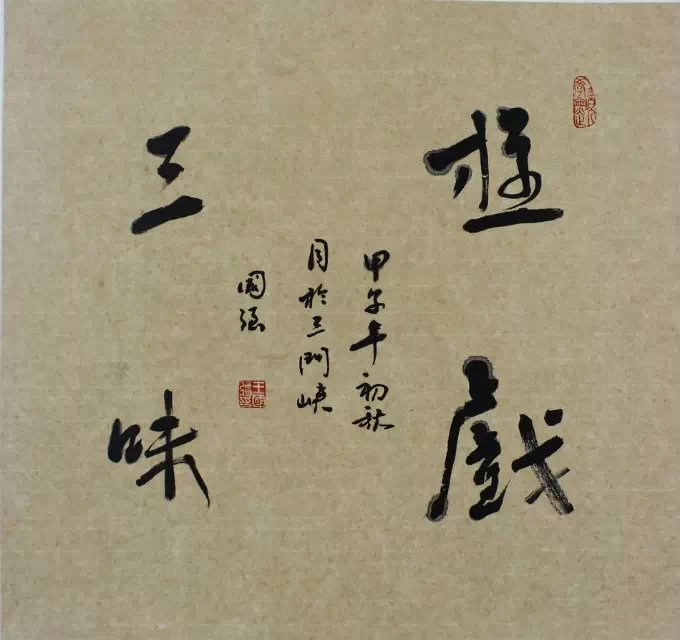 遊戲
三昧
甲午年初秋
月於三門峽
國強